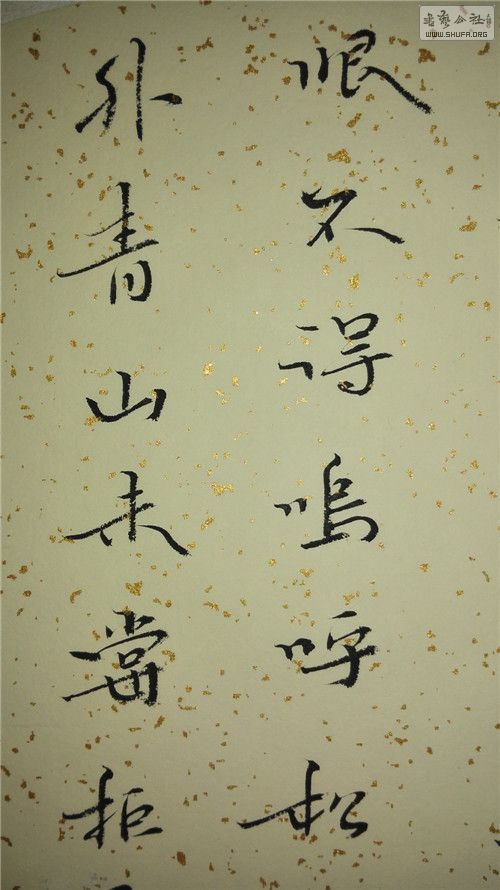 恨不得嗚呼松
外青山未嘗拒
書藝公社
WWW.SHUFA.ORG